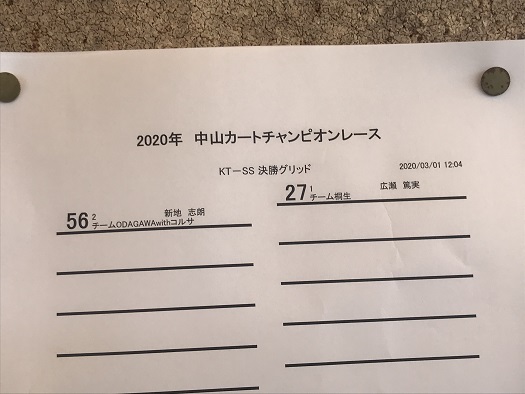 2020年 中山カートチャンピオンレース
KT－SS 決勝グリッド
2020/03/01 12:04
27 1 広瀬 篤実
チーム桐生
56 2 新地 志朗
チームODAGAWAwithコルサ